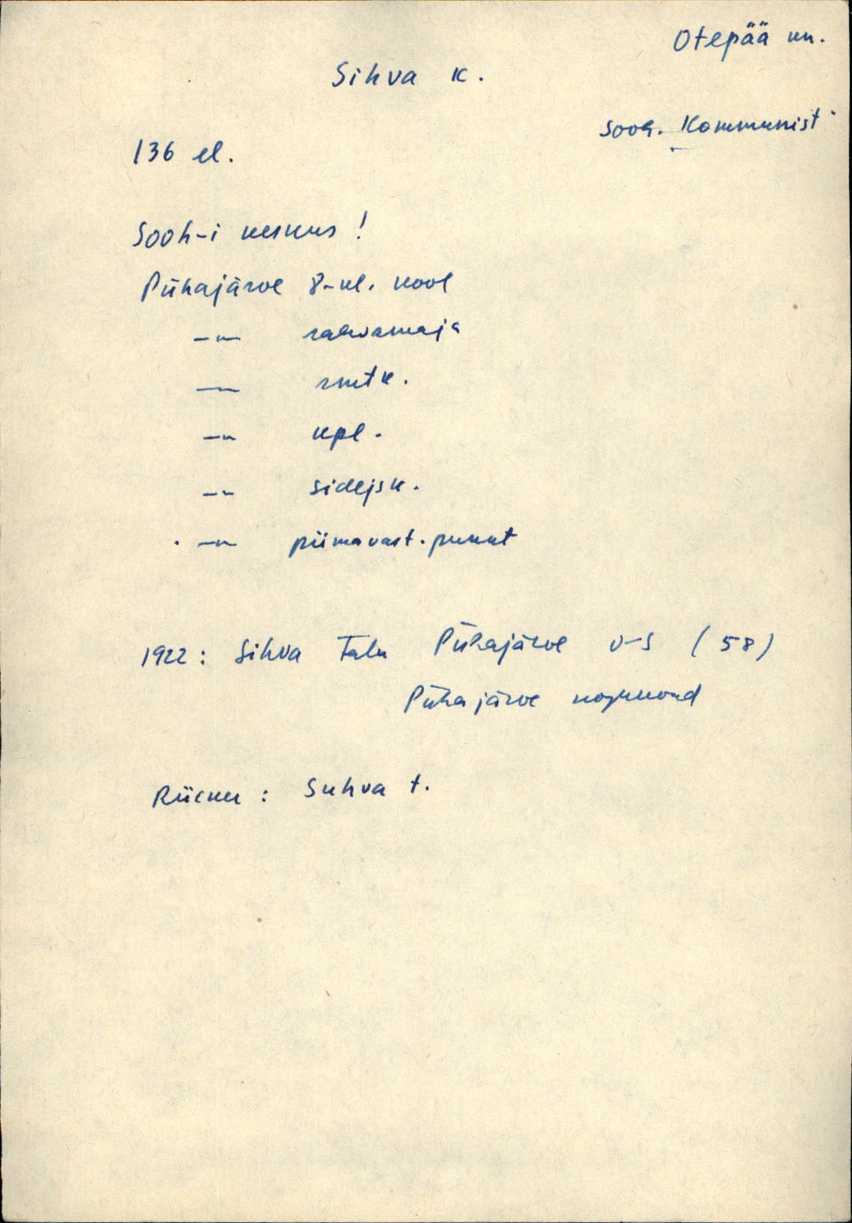 Otepää kn.
Sihva k.
sooh. Kommunist
136 el.
Sooh-i keskus!
Pühajärve 8-kl. kool
—"— rahvamaja
—"— rmtk.
—"— kpl.
—"— sidejsk.
—"— piimavast. punkt
1922: Sihva Talu Pühajärve v-s (58)
Pühajärve kogukond
Rücker: Suhva t.